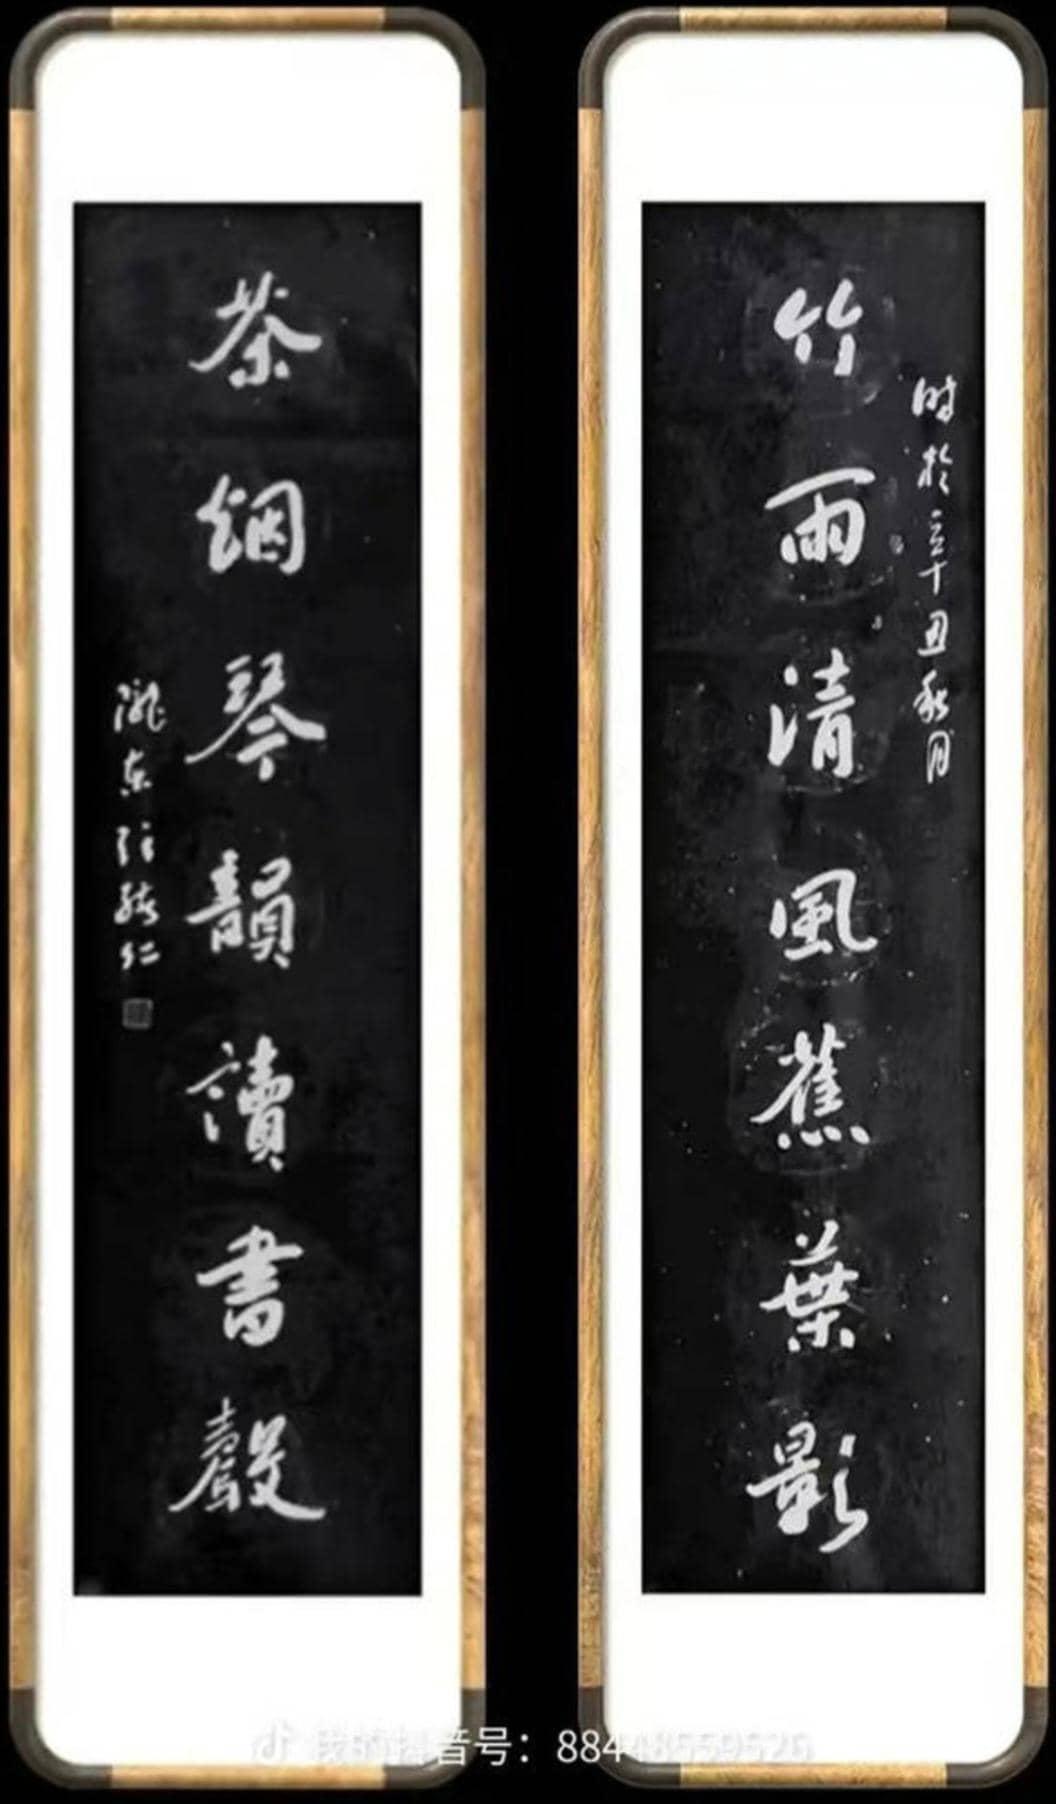 竹雨清風蕉葉影
時於辛丑秋月
茶烟琴韻讀書聲
隴東
我的抖音号：88448559526